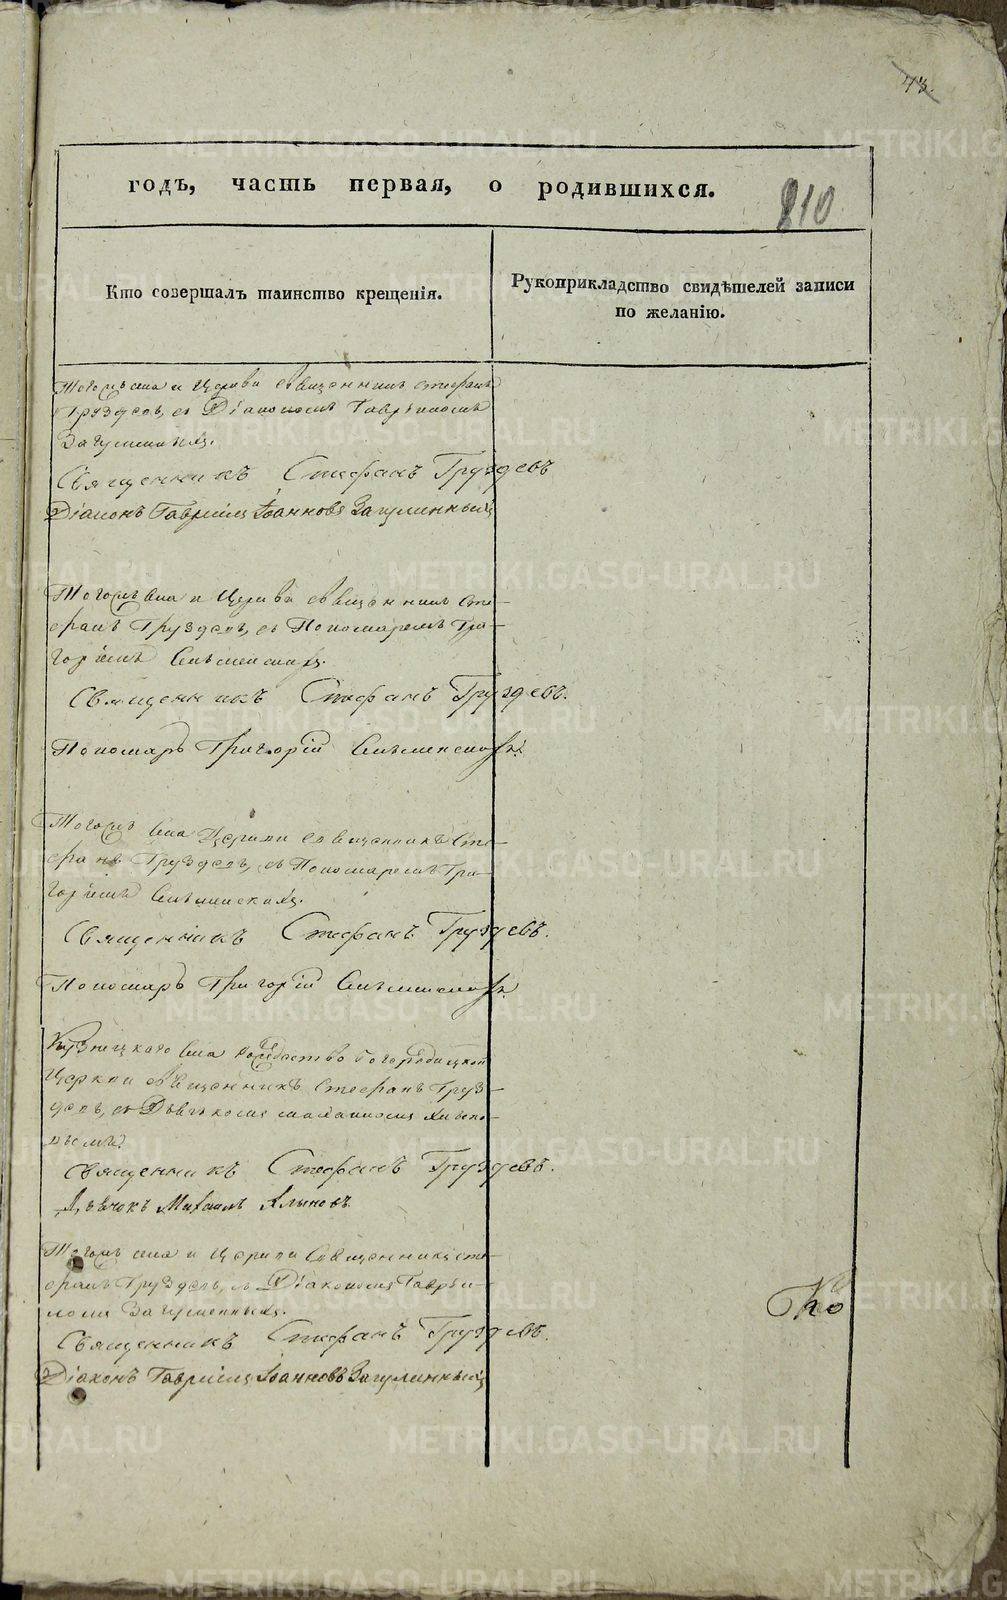 43.
годъ, часть первая, о родившихся.
210
Кто совершалъ таинство крещенія.
Рукоприкладство свидѣтелей записи
по желанію.
Тогожъ села и Церкви священникъ Стефанъ
Груздевъ, съ Діакономъ Гавріиломъ
Загуменныхъ.
Священникъ Стефанъ Груздевъ
Діаконъ Гавріилъ Іоанновъ
Тогожъ села и Церкви священникъ Сте-
фанъ Груздевъ, съ Пономаремъ Гри-
горіемъ
Священникъ Стефанъ Груздевъ.
Пономарь Григорій
Тогожъ села Церкви священникъ Сте-
фанъ Груздевъ, съ Пономаремъ Гри-
горіемъ
Священникъ Стефанъ Груздевъ.
Пономарь Григорій
села Рождество Богородицкой
Церкви священникъ Стефанъ Груз-
девъ, съ
Священникъ Стефанъ Груздевъ.
Дьячокъ Михаилъ
Тогожъ села и Церкви Священникъ Сте-
фанъ Груздевъ, съ Діакономъ Гаврі-
иломъ Загуменныхъ.
Священникъ Стефанъ Груздевъ.
Діаконъ Гавріилъ Іоанновъ
METRIKI.GASO-URAL.RU